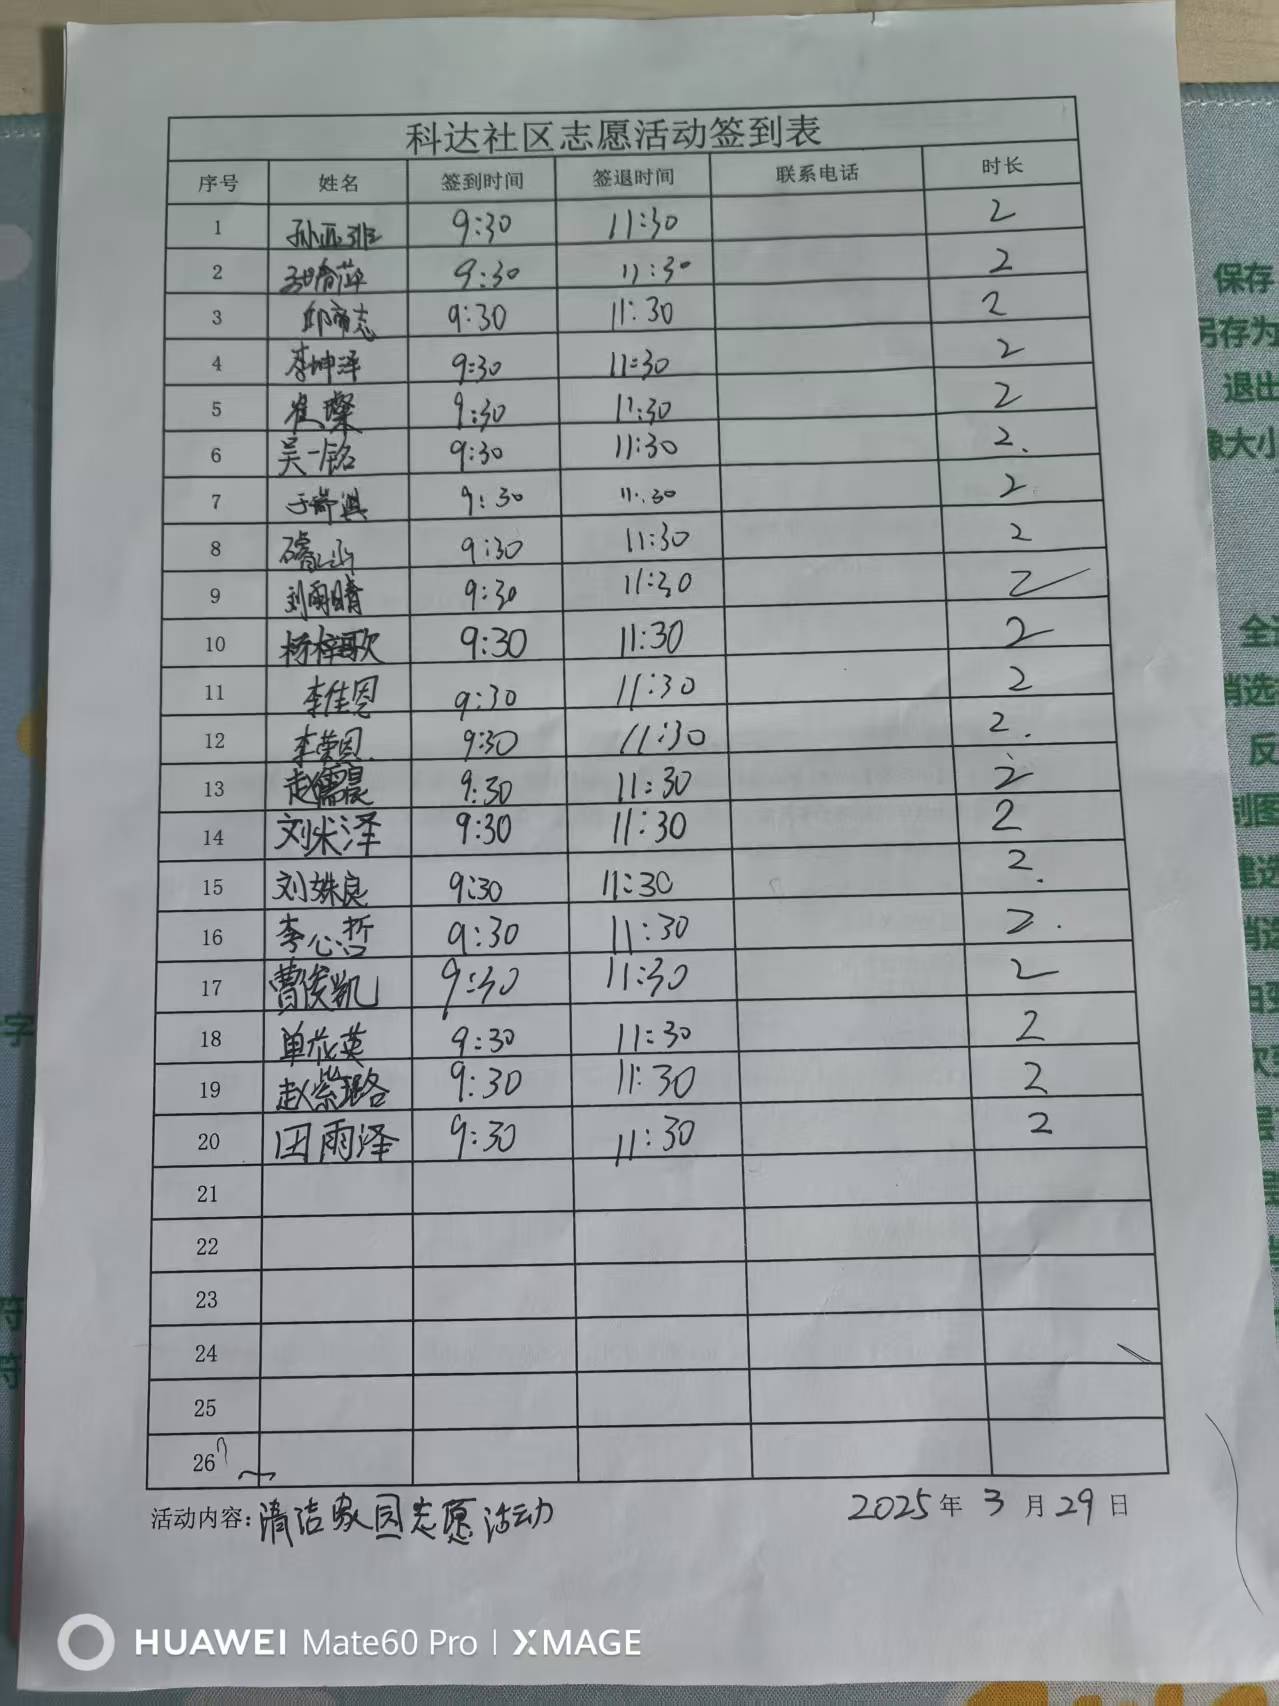 科达社区志愿活动签到表
序号 姓名 签到时间 签退时间 联系电话 时长
1 孙亚 9:30 11:30 2
2 春萍 9:30 11:30 2
3 邱 志 9:30 11:30 2
4 李坤泽 9:30 11:30 2
5 崔璨 9:30 11:30 2
6 吴一铭 9:30 11:30 2.
7 于 淇 9:30 11:30 2
8 9:30 11:30 2
9 刘雨晴 9:30 11:30 2
10 杨梓歌 9:30 11:30 2
11 李佳恩 9:30 11:30 2
12 李荣恩. 9:30 11:30 2.
13 赵儒晨 9:30 11:30 2
14 刘米泽 9:30 11:30 2
15 刘姝良 9:30 11:30 2.
16 李心哲 9:30 11:30 2.
17 曹俊凯 9:30 11:30 2
18 单花英 9:30 11:30 2
19 赵紫璐 9:30 11:30 2
20 田雨泽 9:30 11:30 2
21
22
23
24
25
26
活动内容: 清洁家园志愿活动 2025年 3 月 29 日
保存
另存为
退出
像大小
全
消选
反
制图
建选
消选
字
符
符
HUAWEI Mate60 Pro | XMAGE